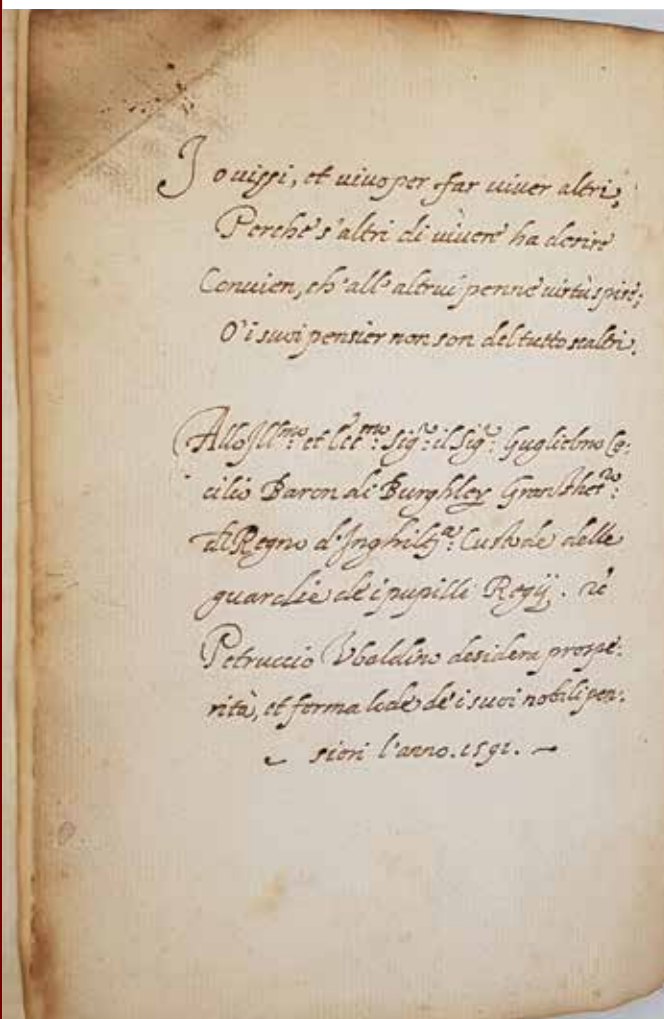 Io uissi, et uiuo per far uiuer altri;
Perche s'altri di uiuere ha desire
Conuien, ch'all'altrui penne uirtù spire;
O' i suoi pensier non son del tutto scaltri.
Allo Ill^mo: et Ecc^mo: Sig^r: il Sig^r: Guglielmo Ce:
cilio Baron di Burghley Gran Thes^ro:
del Regno d'Inghilt^a: Custode delle
guardie de i pupilli Regij.
Petruccio Vbaldino desidera prospe:
rità, et ferma lode de' i suoi nobili pen:
sieri l'anno. 1591.